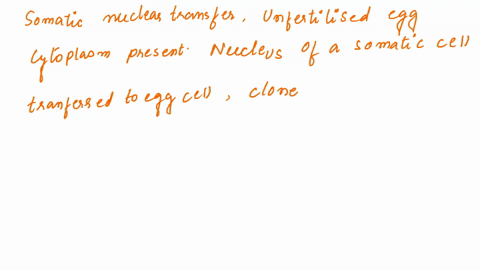 Somatic nuclear transfer, Unfertilised egg
Cytoplasm present. Nucleus of a somatic cell
tranferred to egg cell, clone